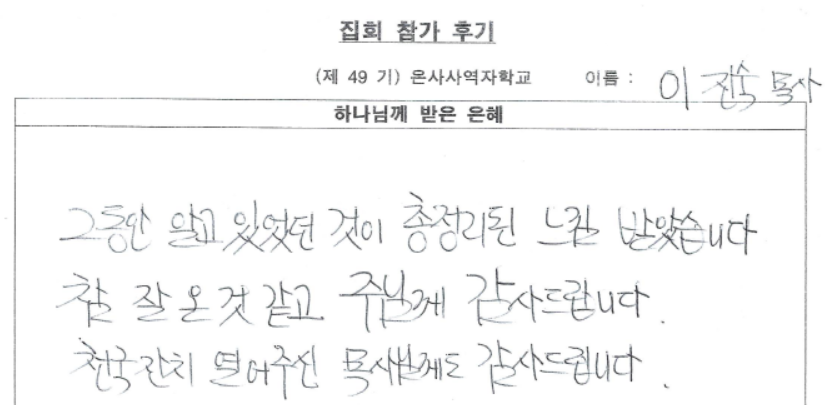 집회 참가 후기
(제 49 기) 은사사역자학교 이름 : 이 진숙 목사
하나님께 받은 은혜
그동안 알고 있었던 것이 총정리된 느낌 받았습니다
참 잘 온 것 같고 주님께 감사드립니다.
천국잔치 열어주신 목사님께도 감사드립니다.